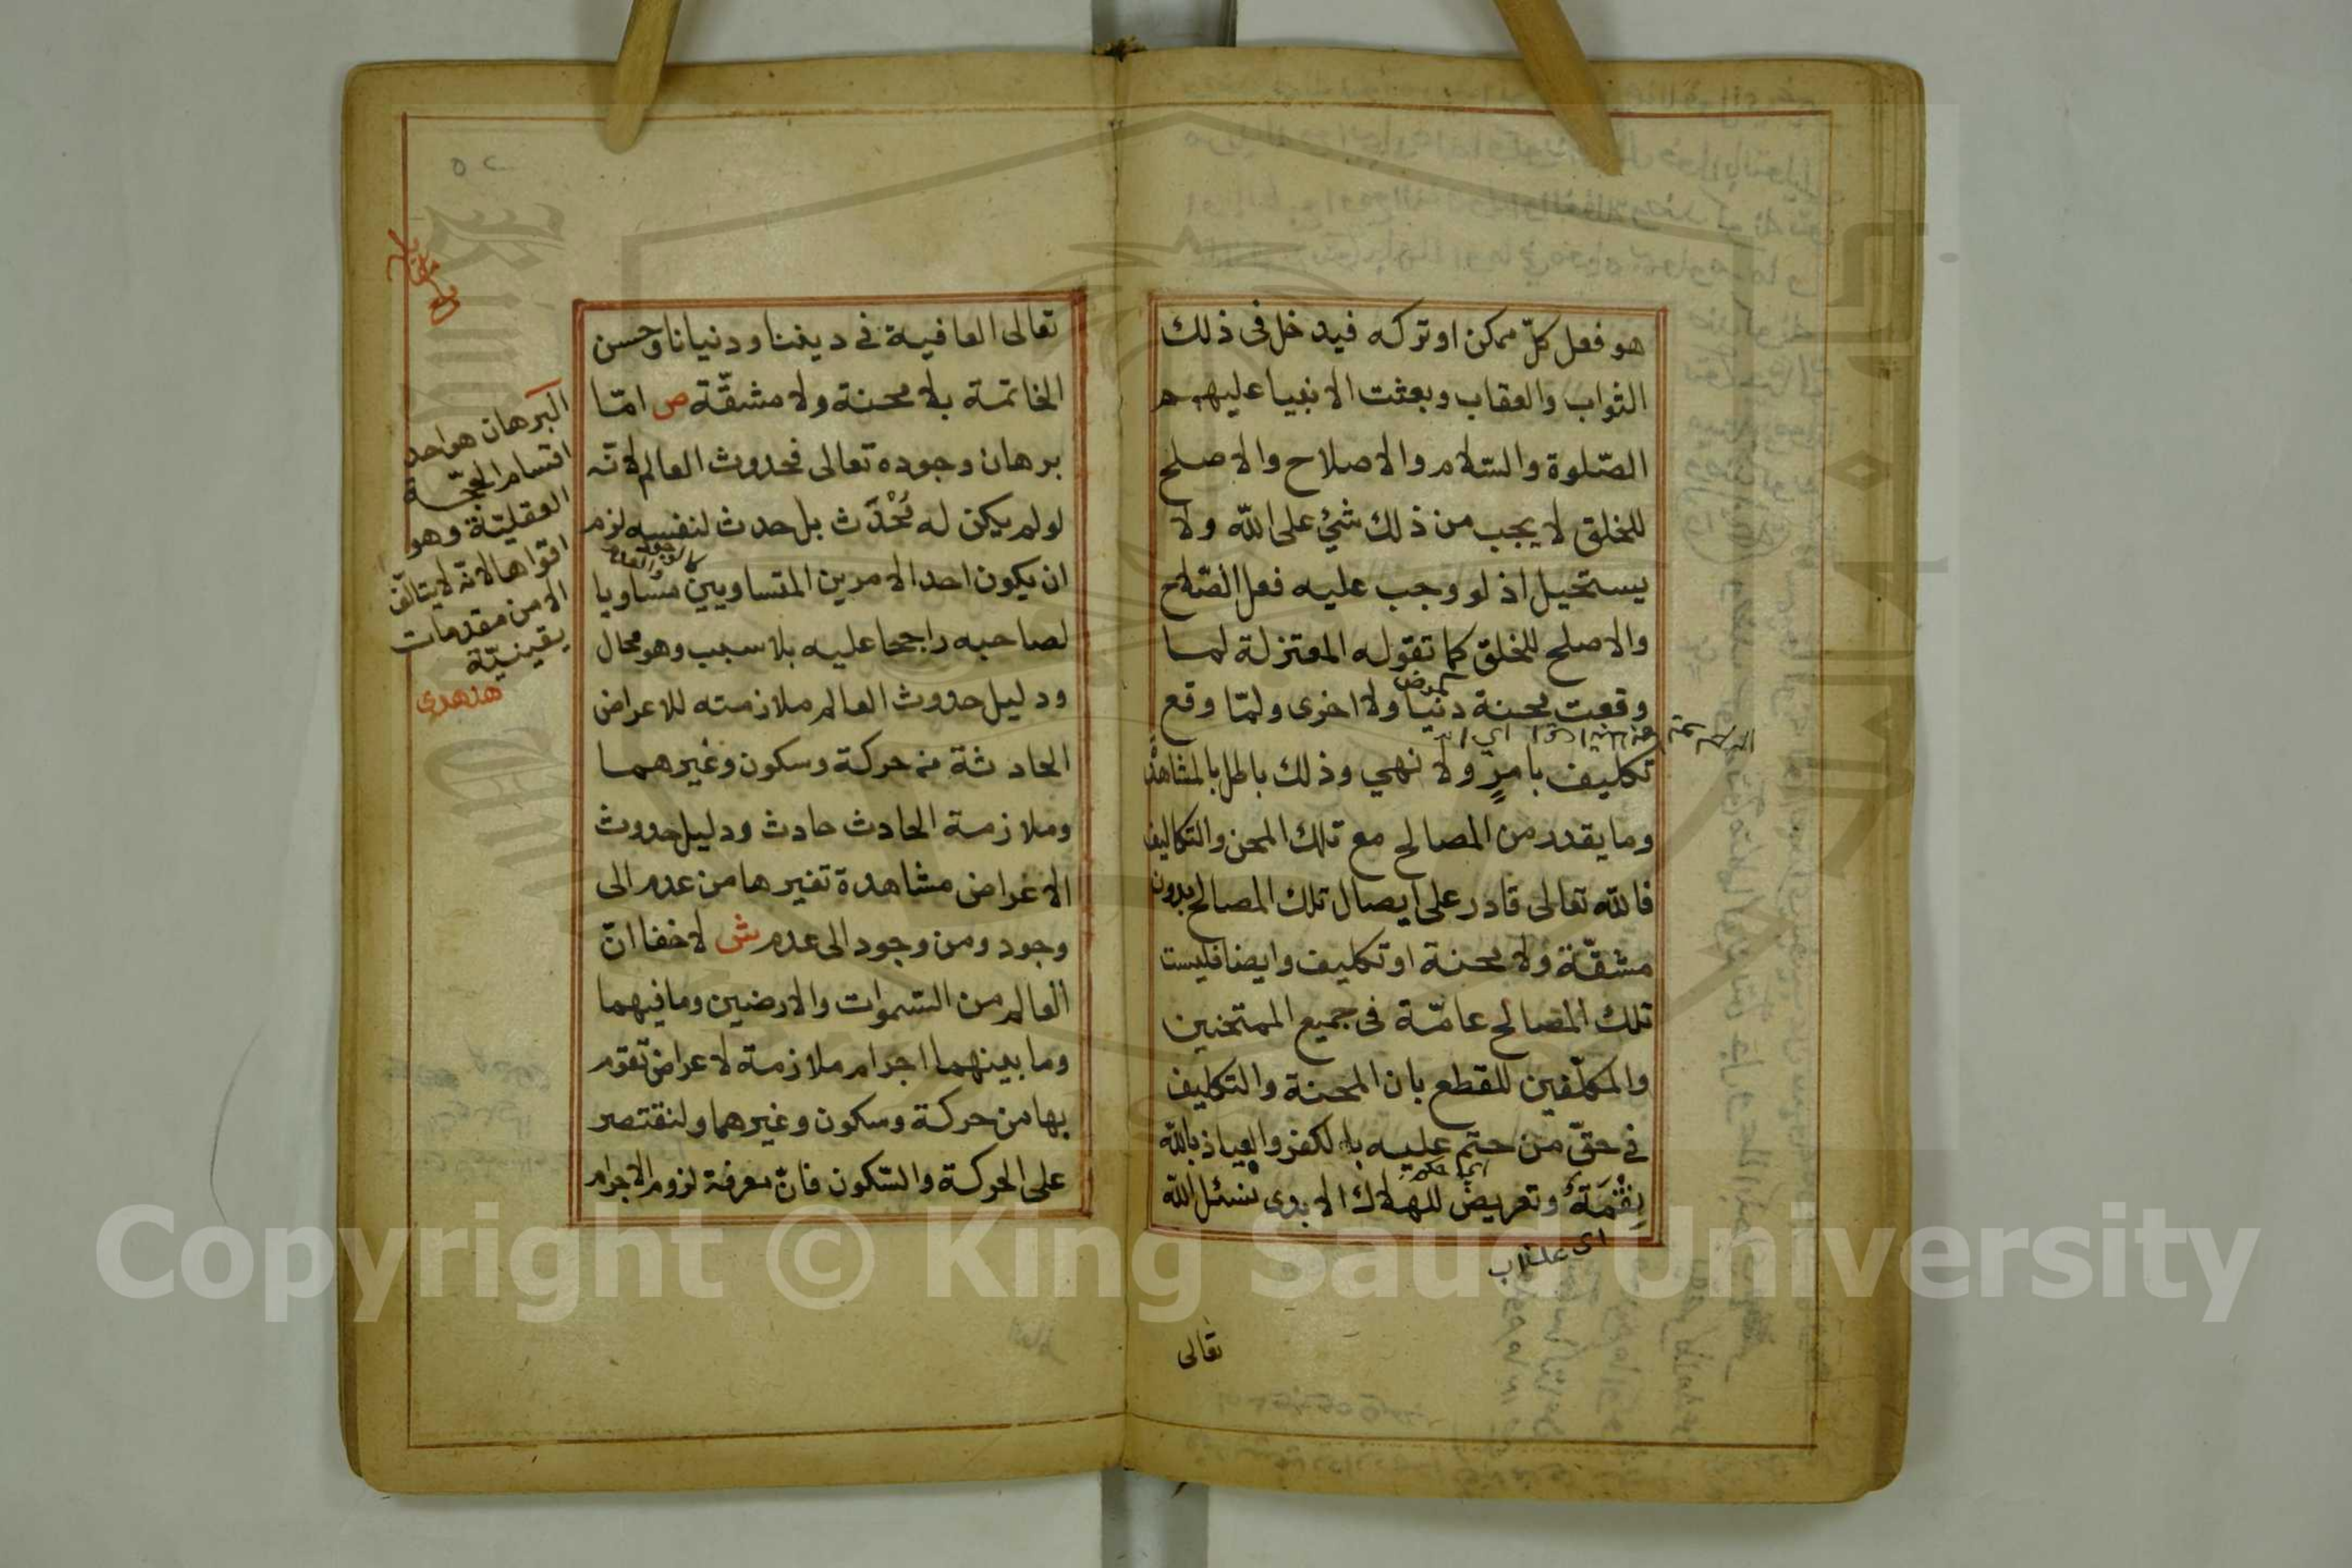 هو فعل كلّ ممكن او تركه فيدخل فى ذلك
الثواب والعقاب وبعثت الانبيا عليهم
الصّلوة والسّلام والاصلاح والاصلح
للخلق لا يجب من ذلك شئ على اللّه ولا
يستحيل اذ لو وجب عليه فعل الصّلاح
والاصلح للخلق كما تقوله المعتزلة لما
كمرض
وقعت محنة دنيا ولا اخرى ولمّا وقع
تكليف بامرٍ ولا نهي وذلك باطل بالمشاهدة
وما يقدر من المصالح مع تلك المحن والتكاليف
فاللّه تعالى قادر على ايصال تلك المصالح بدون
مشقّة ولا محنة او تكليف وايضا فليست
تلك المصالح عامّة فى جميع الممتحنين
والمكلّفين للقطع بان المحنة والتكليف
في حقّ من حتم عليه بالكفر والعياذ باللّه
نِقْمَةٌ وتعريض للهلاك الابدى نسئل اللّه
اى عذاب
تعالى
٥٢
تعالى العافية في ديننا ودنيانا وحسن
الخاتمة بلا محنة ولا مشقّة ص امّا
برهان وجوده تعالى فحدوث العالم لانّه
لو لم يكن له مُحْدَث بل حدث لنفسه لزم
كالوجود والعدم
ان يكون احد الامرين المتساويين مساويا
لصاحبه راجحا عليه بلا سبب وهو محال
ودليل حدوث العالم ملازمته للاعراض
الحادثة من حركة وسكون وغيرهما
وملازمة الحادث حادث ودليل حدوث
الاعراض مشاهدة تغيرها من عدم الى
وجود ومن وجود الى عدم ش لا خفا انّ
العالم من السّموات والارضين وما فيهما
وما بينهما اجرام ملازمة لاعراض تقوم
بها من حركة وسكون وغيرهما ولنقتصر
على الحركة والسّكون فانّ معرفة لزوم الاجرام
البرهان هو احد
اقسام الحجّة
العقليّة وهو
اقواها لانّه لا يتألّف
الا من مقدمات
يقينيّة
هدهدى
Copyright © King Saud University